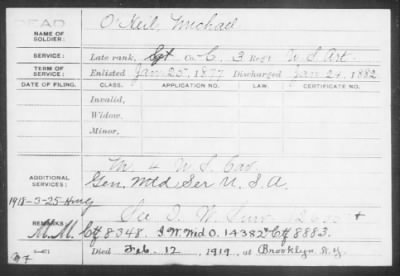 DEAD
NAME OF SOLDIER: O'Neil, Michael
SERVICE: Late rank, Sgt Co. C, 3 Reg't U. S. Art.
TERM OF SERVICE: Enlisted Jan. 25, 1877 Discharged Jan. 24, 1882
DATE OF FILING. CLASS. APPLICATION NO. LAW. CERTIFICATE NO.
Invalid,
Widow,
Minor,
ADDITIONAL SERVICES: M 4 U. S. Cav.
Gen. Mtd Ser U. S. A.
1918-3-25
See O. W. Surv
REMARKS: M. M. Ctf 8348. I. W. Wid O. 14382 Ctf 8883.
Died Feb. 12, 1919, at Brooklyn N.Y.